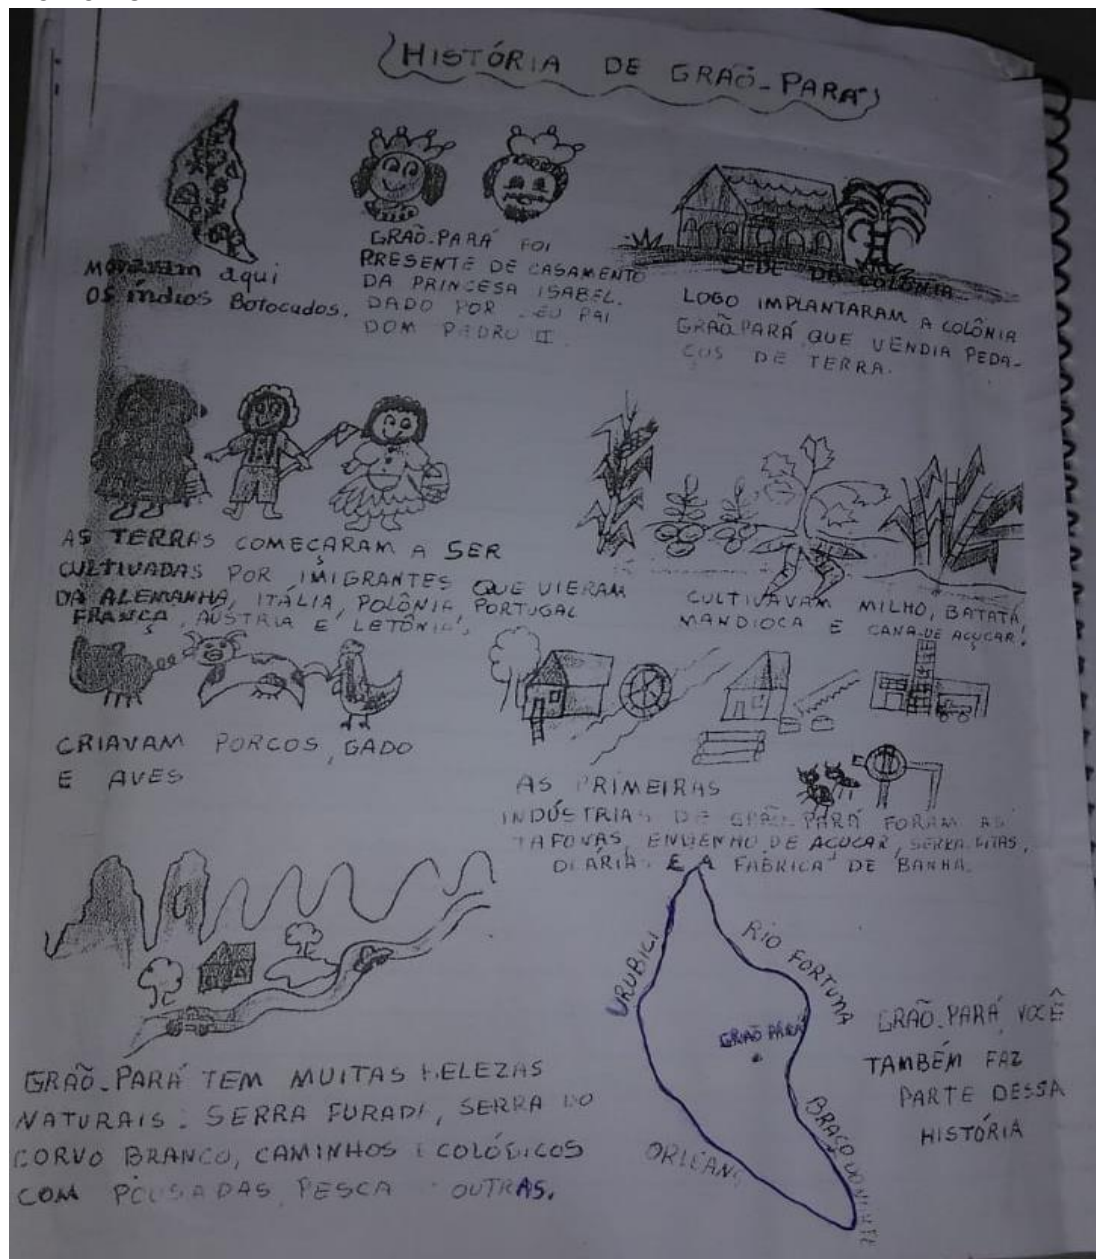 HISTÓRIA DE GRAÕ-PARÁ
MORAVAM aqui
OS índios Botocudos.
GRAÕ-PARÁ FOI
PRESENTE DE CASAMENTO
DA PRINCESA ISABEL.
DADO POR SEU PAI
DOM PEDRO II.
SEDE DA COLÔNIA
LOGO IMPLANTARAM A COLÔNIA
GRAÕ-PARÁ QUE VENDIA PEDA-
ÇOS DE TERRA.
AS TERRAS COMEÇARAM A SER
CULTIVADAS POR IMIGRANTES QUE VIERAM
DA ALEMANHA, ITÁLIA, POLÔNIA, PORTUGAL
FRANÇA, AÚSTRIA E LETÔNIA.
CULTIVAVAM MILHO, BATATA,
MANDIOCA E CANA-DE AÇUCAR!
CRIAVAM PORCOS, GADO
E AVES
AS PRIMEIRAS
INDÚSTRIAS DE GRAÕ-PARÁ FORAM AS
TAFONAS, ENGENHO DE AÇUCAR, SERRA FITAS,
E A FÁBRICA DE BANHA.
GRAÕ-PARÁ TEM MUITAS BELEZAS
NATURAIS: SERRA FURADA, SERRA DO
CORVO BRANCO, CAMINHOS ECOLÓGICOS
COM POUSADAS, PESCA OUTRAS.
URUBICI
RIO FORTUNA
GRAÕ PARÁ
BRAÇO DO NORTE
ORLEANS
GRAÕ-PARÁ VOCÊ
TAMBÉM FAZ
PARTE DESSA
HISTÓRIA